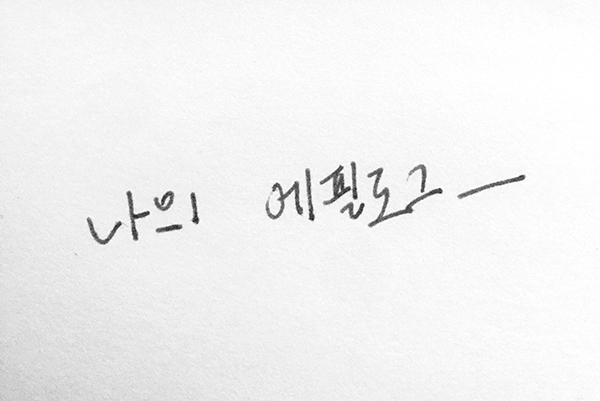 나의 에필로그